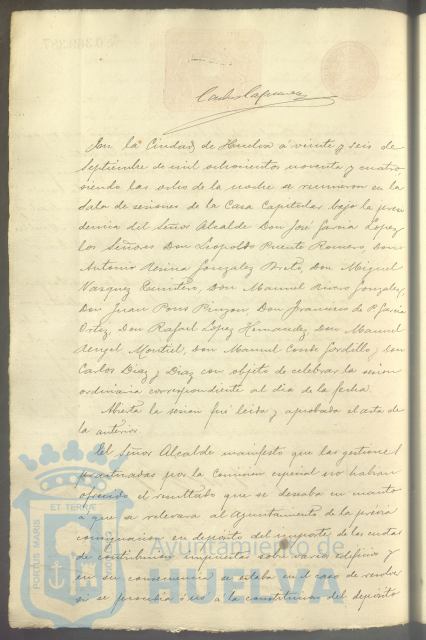 En la Ciudad de Huelva á veinte y seis de
Septiembre de mil ochocientos noventa y cuatro
siendo las ocho de la noche se reunieron en la
Sala de sesiones de la Casa Capitular bajo la presi
dencia del Señor Alcalde Don José García Lopez
los Señores Don Leopoldo Puente Romero, Don
Antonio Resina Gonzalez Prieto, Don Miguel
Vazquez Quintero, Don Manuel Rivero Gonzalez,
Don Juan Pons Pinzon, Don Francisco de P. García
Ortiz, Don Rafael López Hernandez, Don Manuel
Angel Montiel, Don Manuel Conde Gordillo y Don
Carlos Diaz y Diaz con objeto de celebrar la sesion
ordinaria correspondiente al dia de la fecha.
Abierta la sesion fué leida y aprobada el acta de
la anterior.
El Señor Alcalde manifestó que las gestiones
practicadas por la Comision especial no habian
ofrecido el resultado que se deseaba en cuanto
á que se relevara al Ayuntamiento de la previa
consignacion en depósito del importe de las cuotas
de contribucion impuestas sobre el edificio y
en su consecuencia se estaba en el caso de resolver
si se procedia ó no á la constitucion del depósito
PORTUS MARIS ET TERRE
Ayuntamiento de
HUELVA